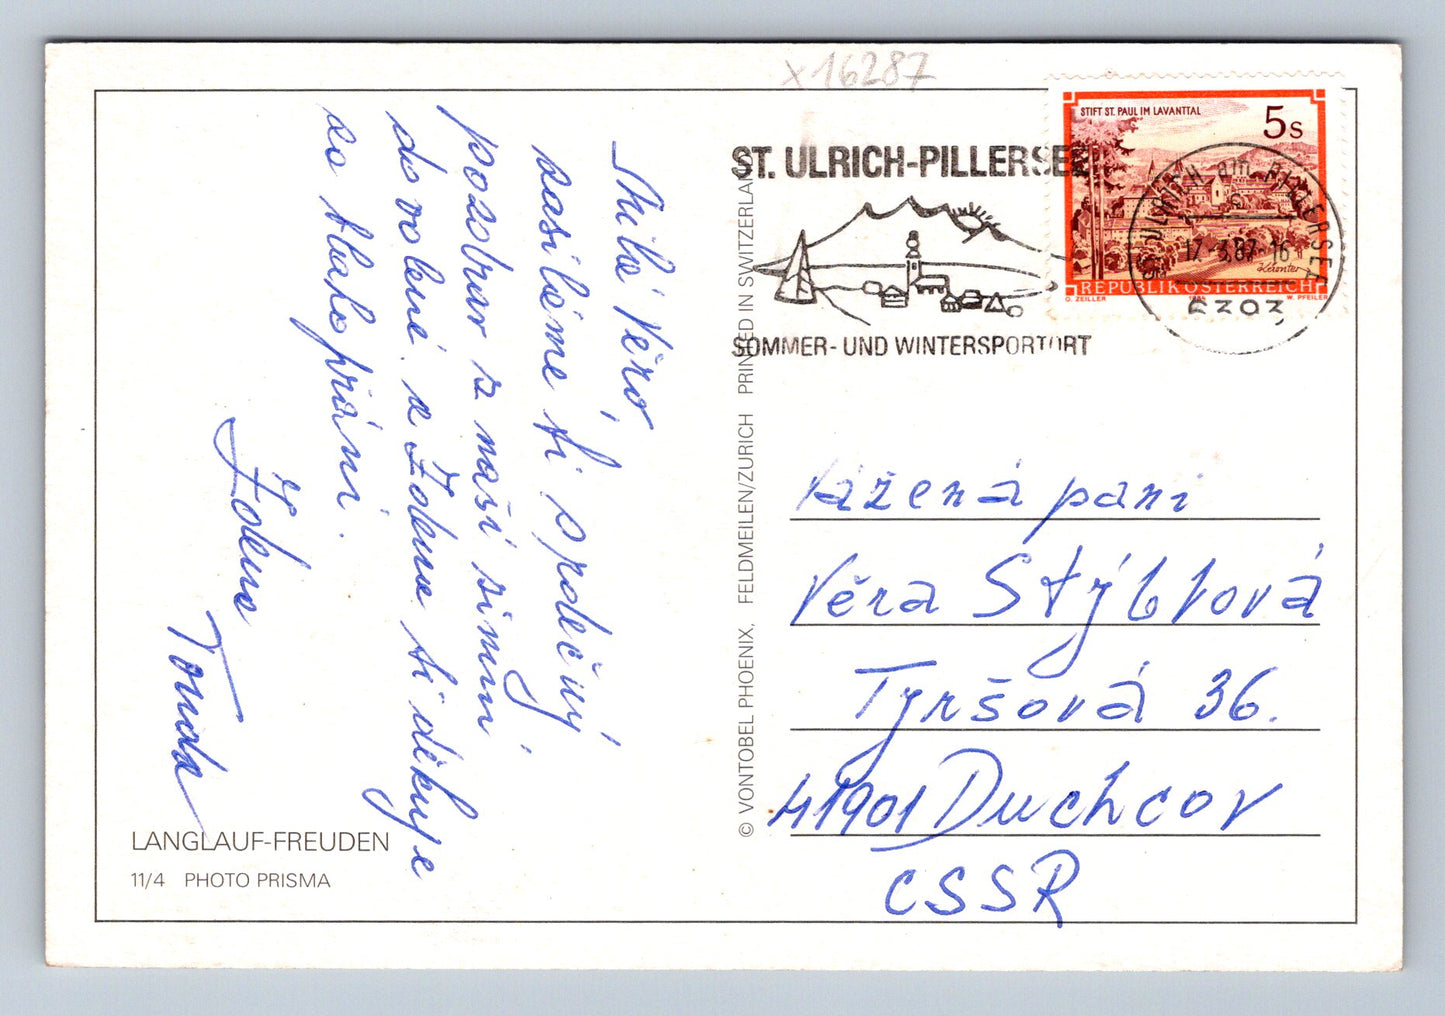 x16287
STIFT ST. PAUL IM LAVANTTAL
5s
ST. ULRICH-PILLERSEE
ST. ULRICH am PILLERSEE
17.-3.87-16
6393
REPUBLIK ÖSTERREICH
G. ZEILLER 1984 W. PFEILER
SOMMER- UND WINTERSPORTORT
Milá Věro,
zasíláme ti společný
pozdrav z naší zimní
dovolené a Zdena ti děkuje
za blahopřání.
Zdena
Tonda
© VONTOBEL PHOENIX, FELDMEILEN/ZURICH PRINTED IN SWITZERLAND
Vážená paní
Věra Stýblová
Tyršová 36.
41901 Duchcov
CSSR
LANGLAUF-FREUDEN
11/4 PHOTO PRISMA